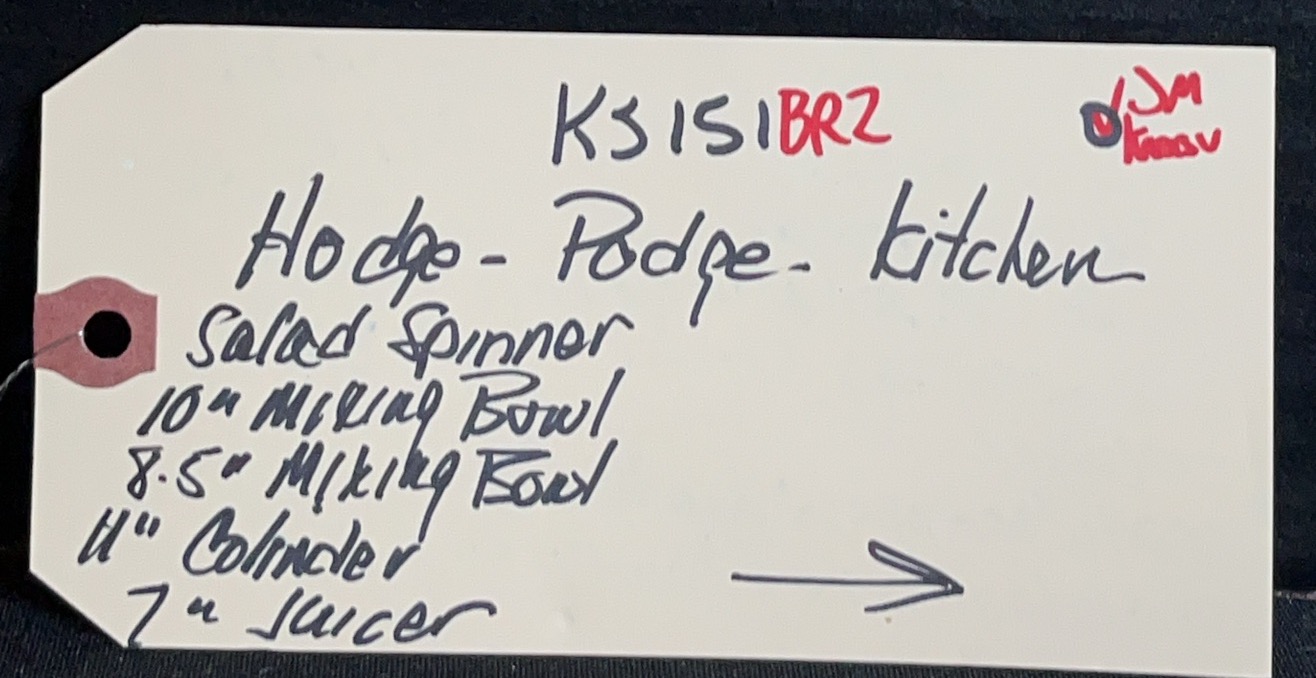 KS151BR2
JM
Hodge-Podge-Kitchen
Salad Spinner
10" Mixing Bowl
8.5" Mixing Bowl
11" Colinder
7" Juicer